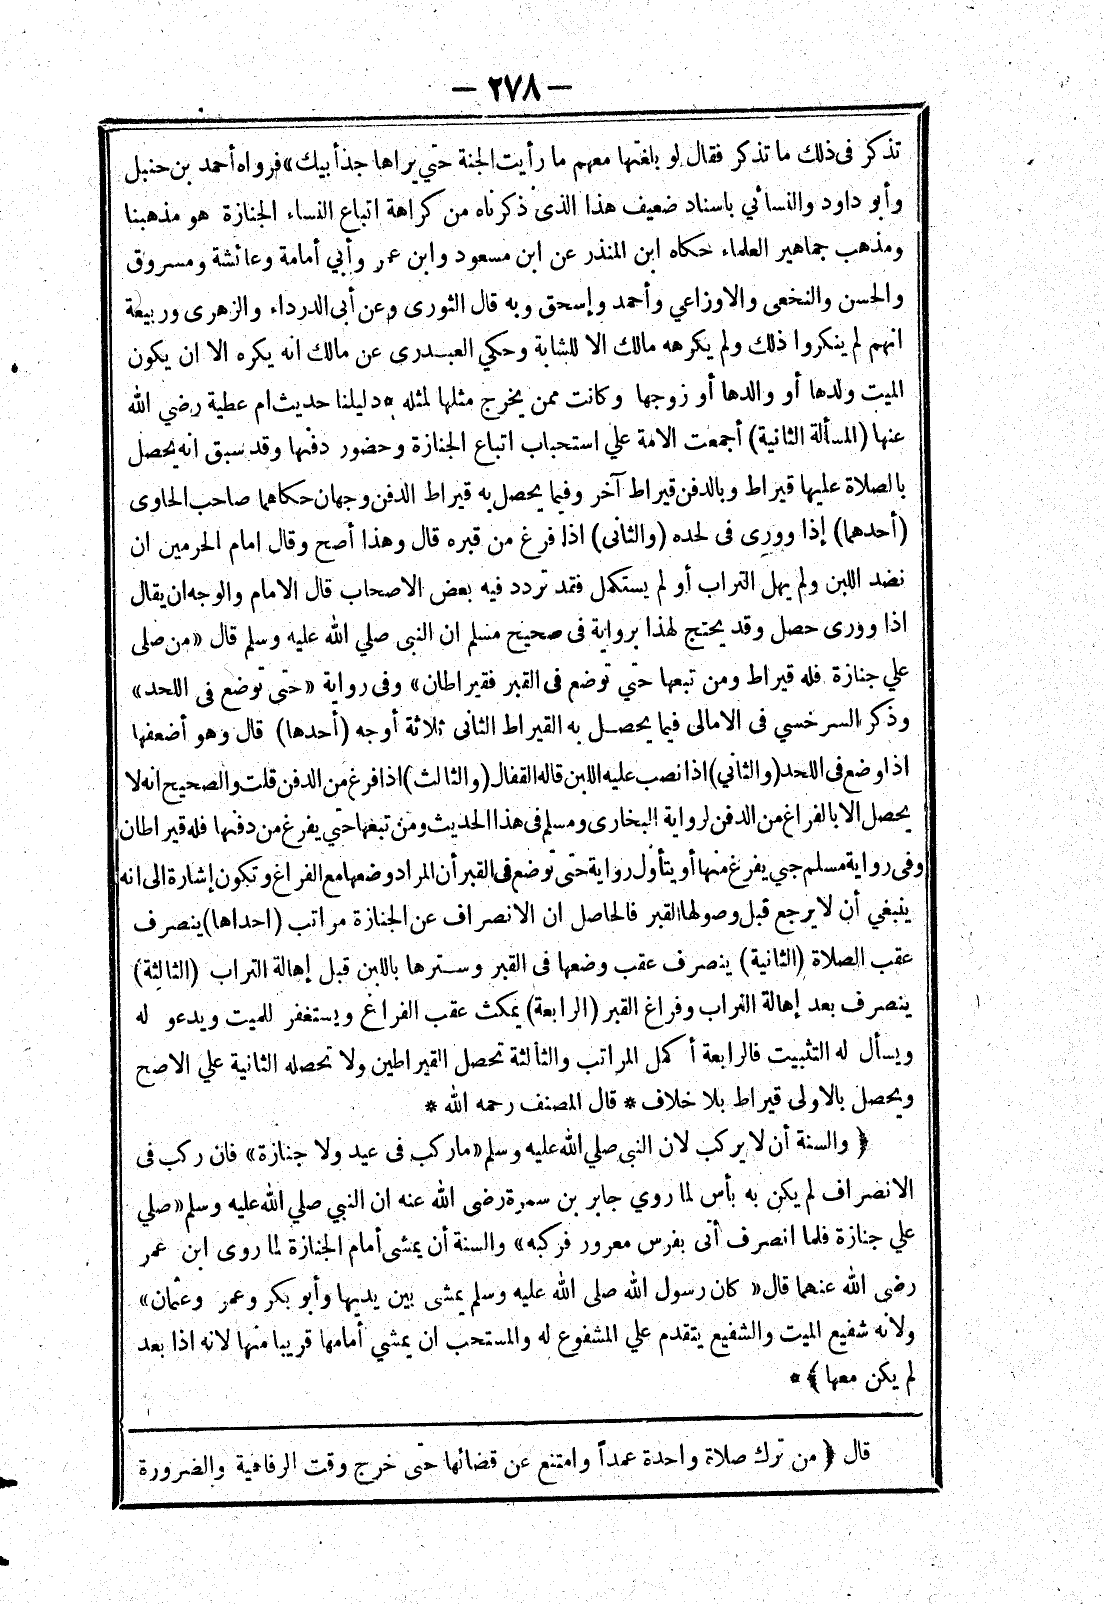 — ٢٧٨ —
تذكر فى ذلك ما تذكر فقال لو بلغتها معهم ما رأيت الجنة حتي يراها جد أبيك» فرواه أحمد بن حنبل
وأبو داود والنسائي باسناد ضعيف هذا الذى ذكرناه من كراهة اتباع النساء الجنازة هو مذهبنا
ومذهب جماهير العلماء حكاه ابن المنذر عن ابن مسعود وابن عمر وأبي أمامة وعائشة ومسروق
والحسن والنخعى والاوزاعي وأحمد وإسحق وبه قال الثورى وعن أبى الدرداء والزهرى وربيعة
انهم لم ينكروا ذلك ولم يكرهه مالك الا للشابة وحكي العبدرى عن مالك انه يكره الا ان يكون
الميت ولدها أو والدها أو زوجها وكانت ممن يخرج مثلها لمثله * دليلنا حديث ام عطية رضي الله
عنها (المسألة الثانية) أجمعت الامة علي استحباب اتباع الجنازة وحضور دفنها وقد سبق انه يحصل
بالصلاة عليها قيراط وبالدفن قيراط آخر وفيما يحصل به قيراط الدفن وجهان حكاهما صاحب الحاوى
(أحدهما) إذا وورى فى لحده (والثانى) اذا فرغ من قبره قال وهذا أصح وقال امام الحرمين ان
نضد اللبن ولم يهل التراب أو لم يستكمل فقد تردد فيه بعض الاصحاب قال الامام والوجه ان يقال
اذا وورى حصل وقد يحتج لهذا برواية فى صحيح مسلم ان النبى صلي الله عليه وسلم قال «من صلى
علي جنازة فله قيراط ومن تبعها حتي توضع فى القبر فقيراطان» وفى رواية «حتى توضع فى اللحد»
وذكر السرخسي فى الامالى فيما يحصل به القيراط الثانى ثلاثة أوجه (أحدها) قال وهو أضعفها
اذا وضع فى اللحد (والثاني) اذا نصب عليه اللبن قاله القفال (والثالث) اذا فرغ من الدفن قلت والصحيح انه لا
يحصل الا بالفراغ من الدفن لرواية البخارى ومسلم فى هذا الحديث ومن تبعها حتي يفرغ من دفنها فله قيراطان
وفى رواية مسلم حتي يفرغ منها أو يتأول رواية حتى توضع فى القبر أن المراد وضعها مع الفراغ وتكون إشارة الى انه
ينبغي أن لا يرجع قبل وصولها القبر فالحاصل ان الانصراف عن الجنازة مراتب (احداها) ينصرف
عقب الصلاة (الثانية) ينصرف عقب وضعها فى القبر وسترها باللبن قبل إهالة التراب (الثالثة)
ينصرف بعد إهالة التراب وفراغ القبر (الرابعة) يمكث عقب الفراغ ويستغفر للميت ويدعو له
ويسأل له التثبيت فالرابعة أكمل المراتب والثالثة تحصل القيراطين ولا تحصله الثانية علي الاصح
ويحصل بالاولى قيراط بلا خلاف * قال المصنف رحمه الله *
﴿ والسنة أن لا يركب لان النبي صلي الله عليه وسلم «ماركب فى عيد ولا جنازة» فان ركب فى
الانصراف لم يكن به بأس لما روي جابر بن سمرة رضى الله عنه ان النبي صلي الله عليه وسلم «صلي
علي جنازة فلما انصرف أتى بفرس معرور فركبه» والسنة أن يمشى أمام الجنازة لما روى ابن عمر
رضى الله عنهما قال «كان رسول الله صلى الله عليه وسلم يمشى بين يديها وأبو بكر وعمر وعثمان»
ولانه شفيع الميت والشفيع يتقدم علي المشفوع له والمستحب ان يمشي أمامها قريبا منها لانه اذا بعد
لم يكن معها ﴾ *
قال ﴿ من ترك صلاة واحدة عمداً وامتنع عن قضائها حتى خرج وقت الرفاهية والضرورة